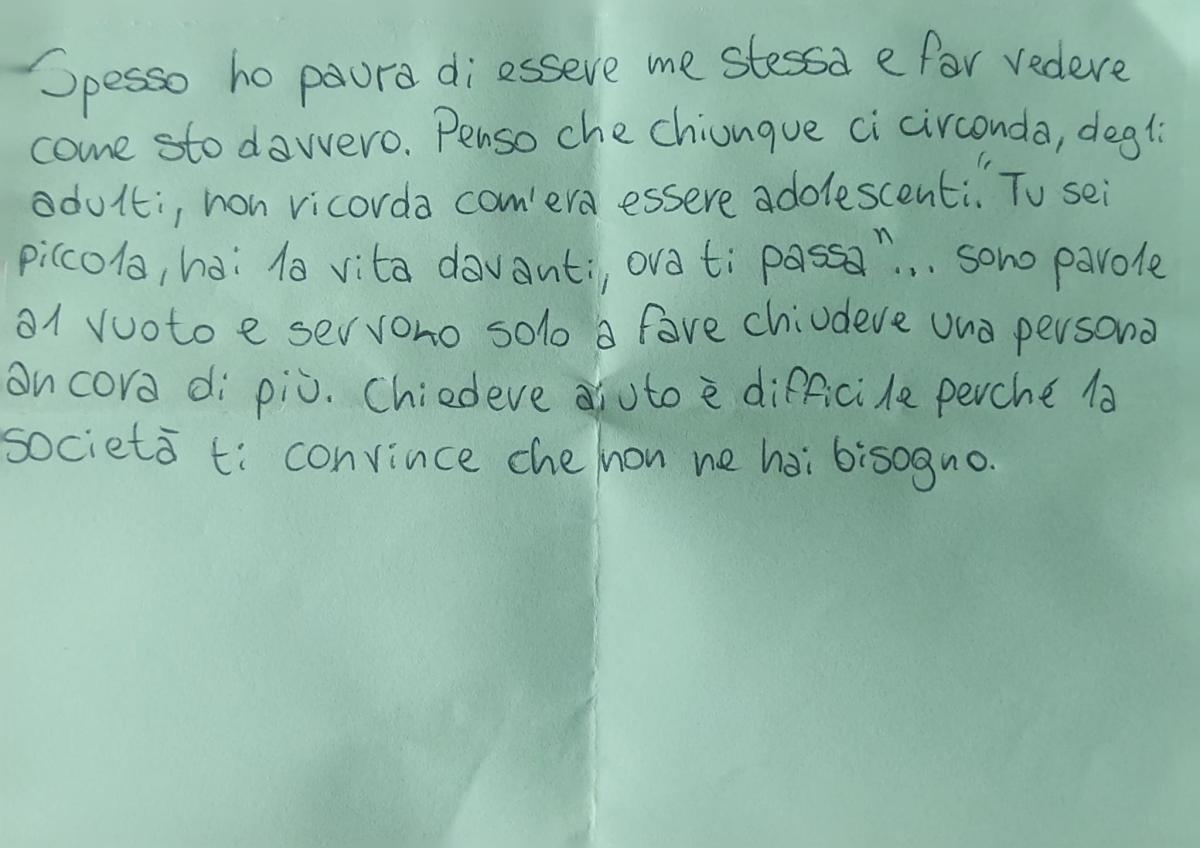 Spesso ho paura di essere me stessa e far vedere
come sto davvero. Penso che chiunque ci circonda, degli
adulti, non ricorda com'era essere adolescenti. "Tu sei
piccola, hai la vita davanti, ora ti passa"... sono parole
al vuoto e servono solo a fare chiudere una persona
ancora di più. Chiedere aiuto è difficile perché la
società ti convince che non ne hai bisogno.